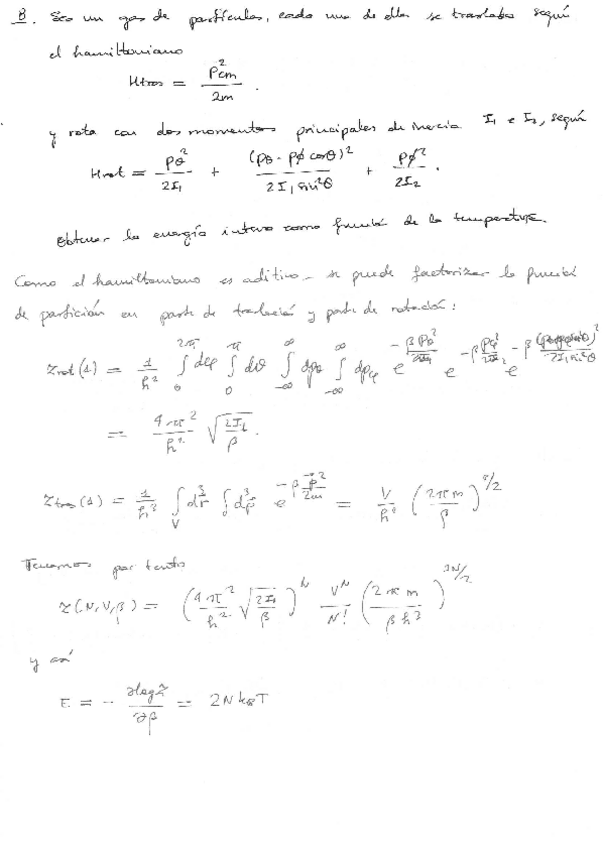 8. Sea un gas de partículas, cada una de ellas se traslada según
el hamiltoniano
Htras = Pcm² / 2m .
y rota con dos momentos principales de inercia I₁ e I₂, según
Hrot = pθ² / 2I₁ + (pθ - pϕ cosθ)² / 2I₁ sin²θ + pϕ² / 2I₂ .
Obtener la energía interna como función de la temperatura.
Como el hamiltoniano es aditivo - se puede factorizar la función
de partición en parte de traslación y parte de rotación:
Zrot(1) = 1/h² ∫₀^2π dφ ∫₀^π dθ ∫_-∞^∞ dpθ ∫_-∞^∞ dpφ e^(-β pθ²/2I₁) e^(-β pφ²/2I₂) e^(-β ()²/2I₁ sin²θ)
= 4π²/h² √(2I₁/β) .
Ztras(1) = 1/h³ ∫_V d³r ∫ d³p e^(-β p²/2m) = V/h³ (2πm/β)^3/2
Tenemos por tanto
Z(N,V,β) = (4π²/h² √(2I₁/β))^N V^N/N! (2πm/βh²)^3N/2
y así
E = - ∂logZ/∂β = 2NkBT